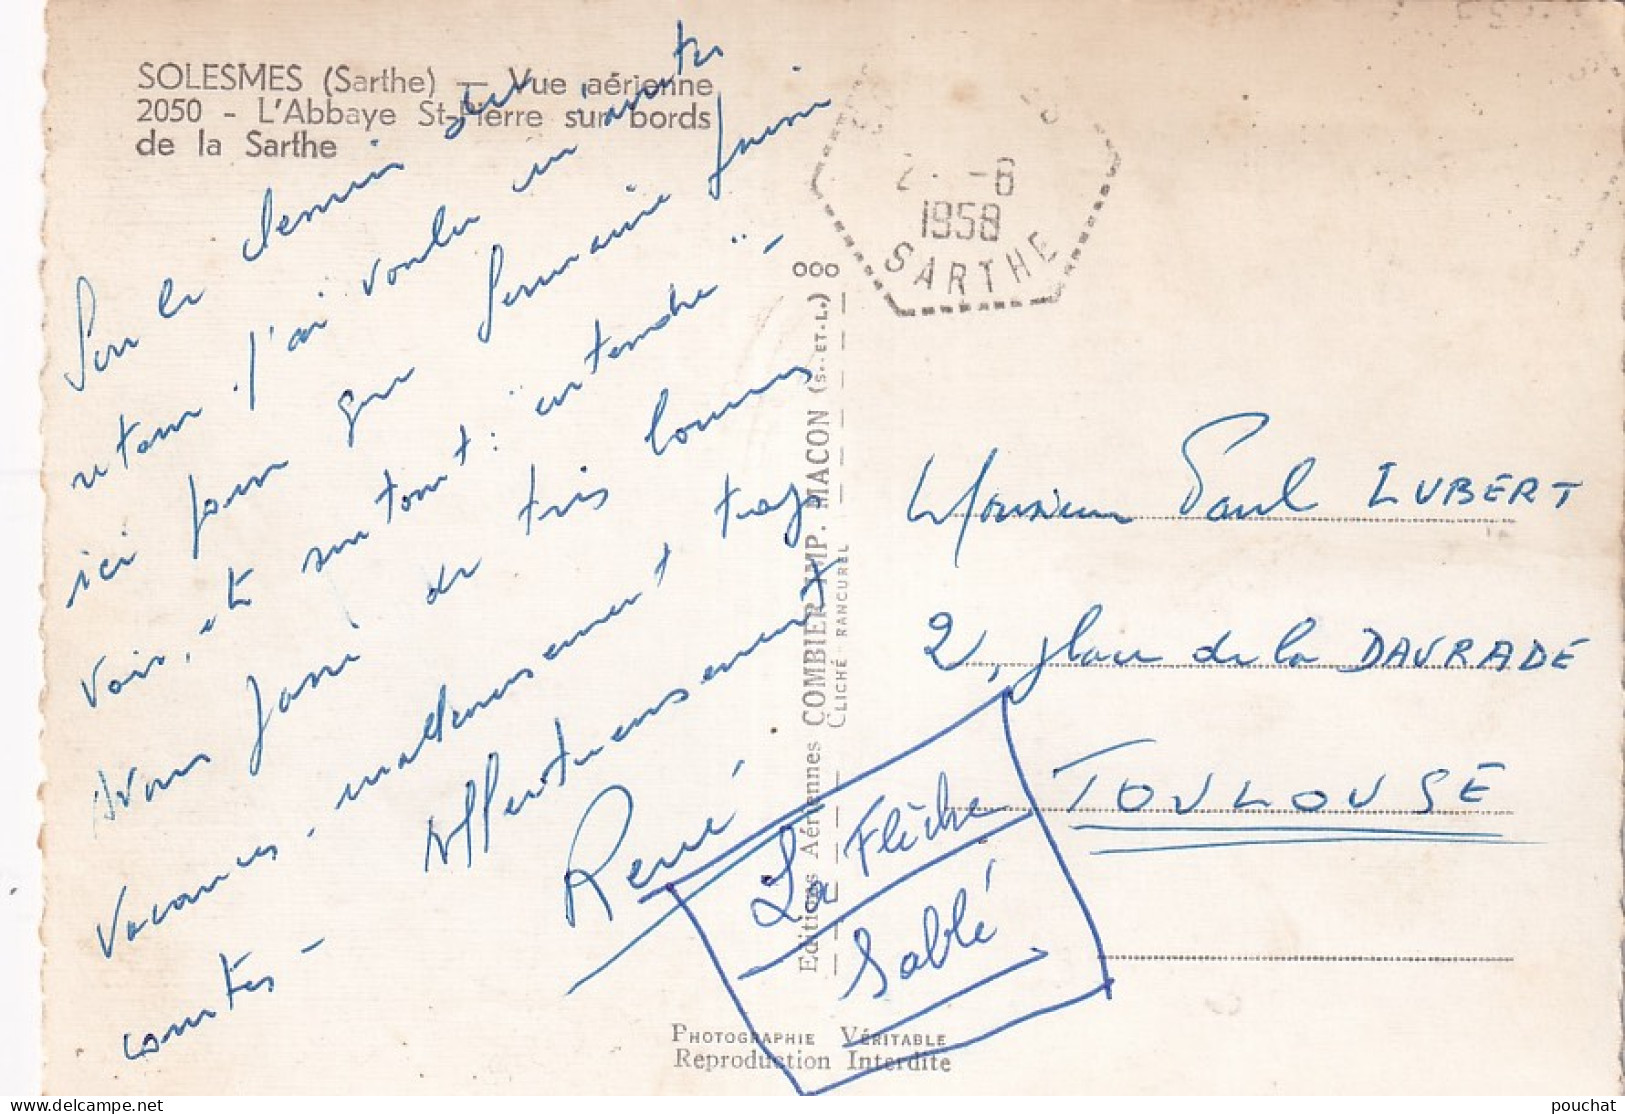 SOLESMES (Sarthe) — Vue aérienne
2050 - L'Abbaye St-Pierre sur bords
de la Sarthe
Sur le chemin du
retour j'ai voulu un arrêt
ici pour que Germaine puisse
voir, et surtout : "entendre" -
Nous avons de très bonnes
vacances, malheureusement trop
courtes -
Affectueusement
René
La Flèche
Sablé
2 - -8
1958
SARTHE
Editions Aériennes COMBIER IMP. MACON (S.-ET-L.)
CLICHÉ RANCUREL
Monsieur Paul LUBERT
2, place de la DAURADE
TOULOUSE
PHOTOGRAPHIE VÉRITABLE
Reproduction Interdite
delcampe.net
pouchat